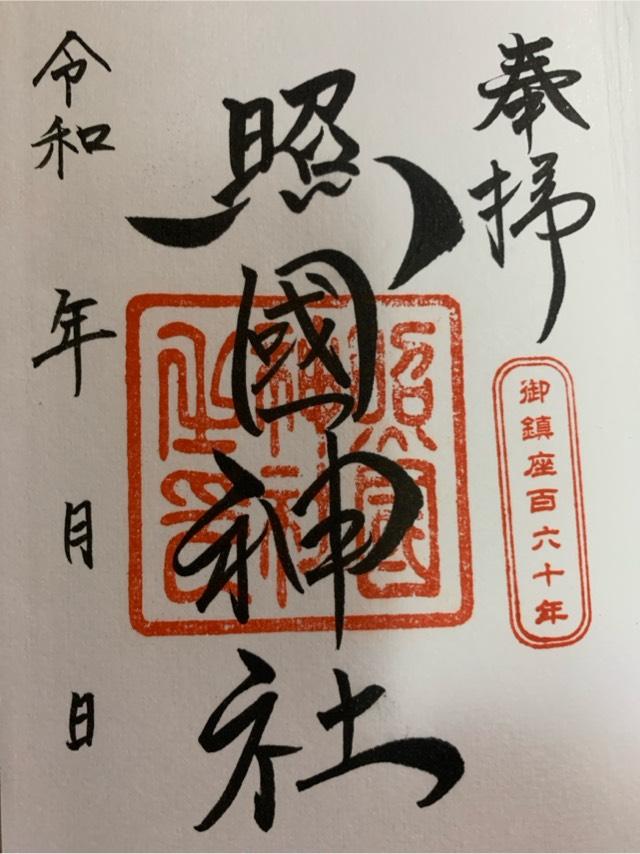 奉拝
御鎮座百六十年
照國神社
照國
神社
之印
令和 年 月 日